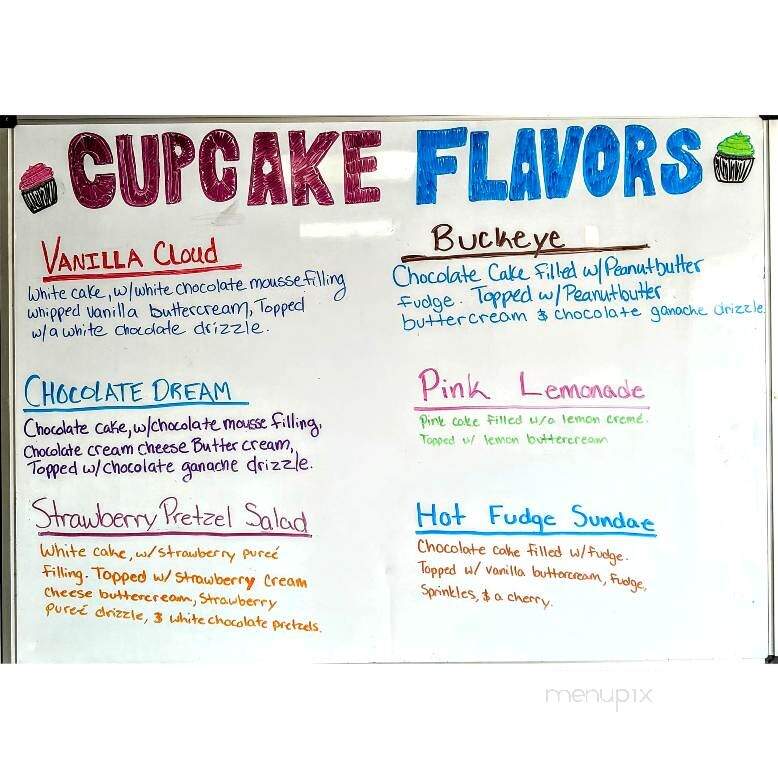 CUPCAKE FLAVORS
VANILLA Cloud
White cake, w/white chocolate mousse filling
whipped vanilla buttercream, Topped
w/a white chocolate drizzle.
CHOCOLATE DREAM
Chocolate cake, w/chocolate mousse filling,
Chocolate cream cheese Butter cream,
Topped w/chocolate ganache drizzle.
Strawberry Pretzel Salad
White cake, w/strawberry pureé
filling. Topped w/ strawberry Cream
cheese buttercream, strawberry
pureé drizzle, & white chocolate pretzels.
Buckeye
Chocolate Cake filled w/Peanutbutter
fudge. Topped w/Peanutbutter
buttercream & chocolate ganache drizzle.
Pink Lemonade
Pink cake filled w/a lemon cremé.
Topped w/ lemon buttercream
Hot Fudge Sundae
Chocolate cake filled w/fudge.
Topped w/ vanilla buttercream, fudge,
Sprinkles, & a cherry.
menupix